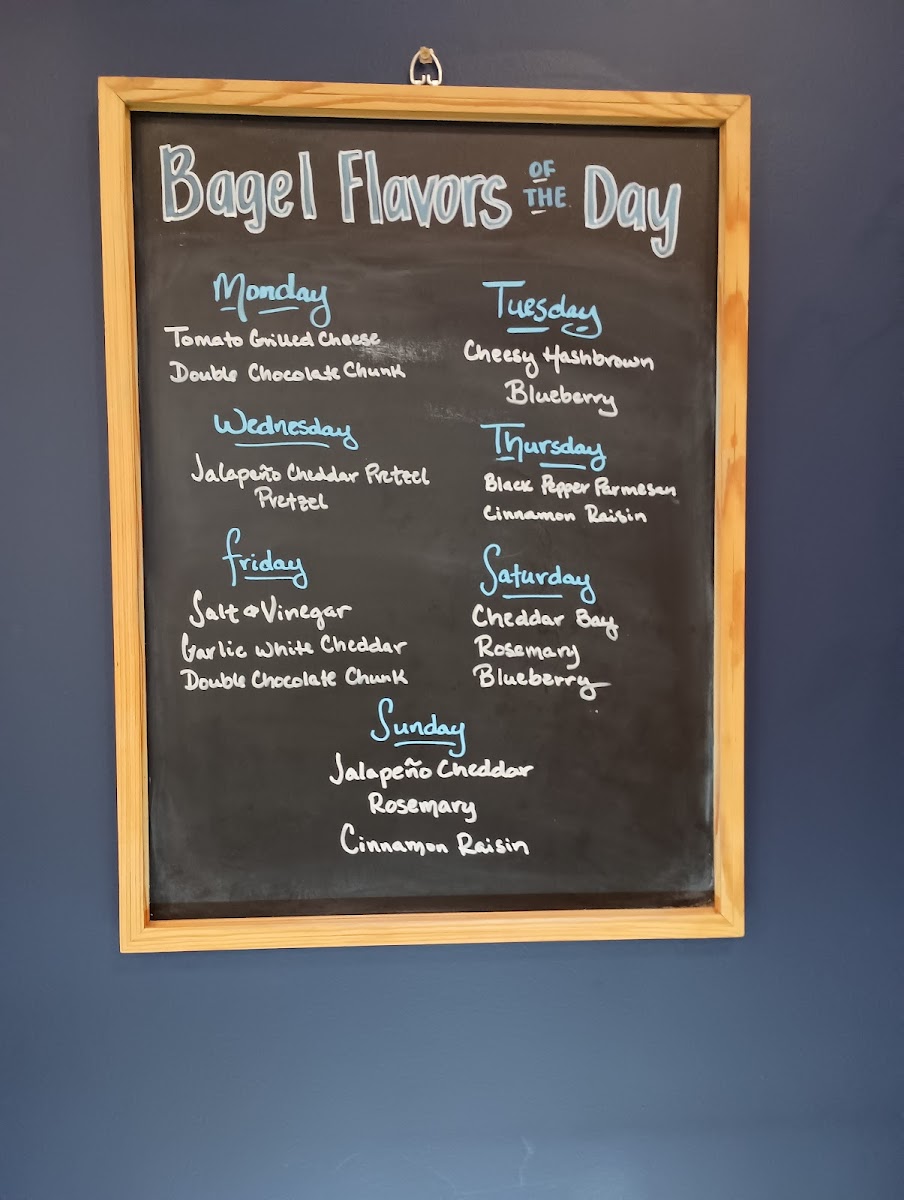 Bagel Flavors OF THE Day
Monday
Tomato Grilled Cheese
Double Chocolate Chunk
Tuesday
Cheesy Hashbrown
Blueberry
Wednesday
Jalapeño Cheddar Pretzel
Pretzel
Thursday
Black Pepper Parmesan
Cinnamon Raisin
Friday
Salt & Vinegar
Garlic White Cheddar
Double Chocolate Chunk
Saturday
Cheddar Bay
Rosemary
Blueberry
Sunday
Jalapeño Cheddar
Rosemary
Cinnamon Raisin